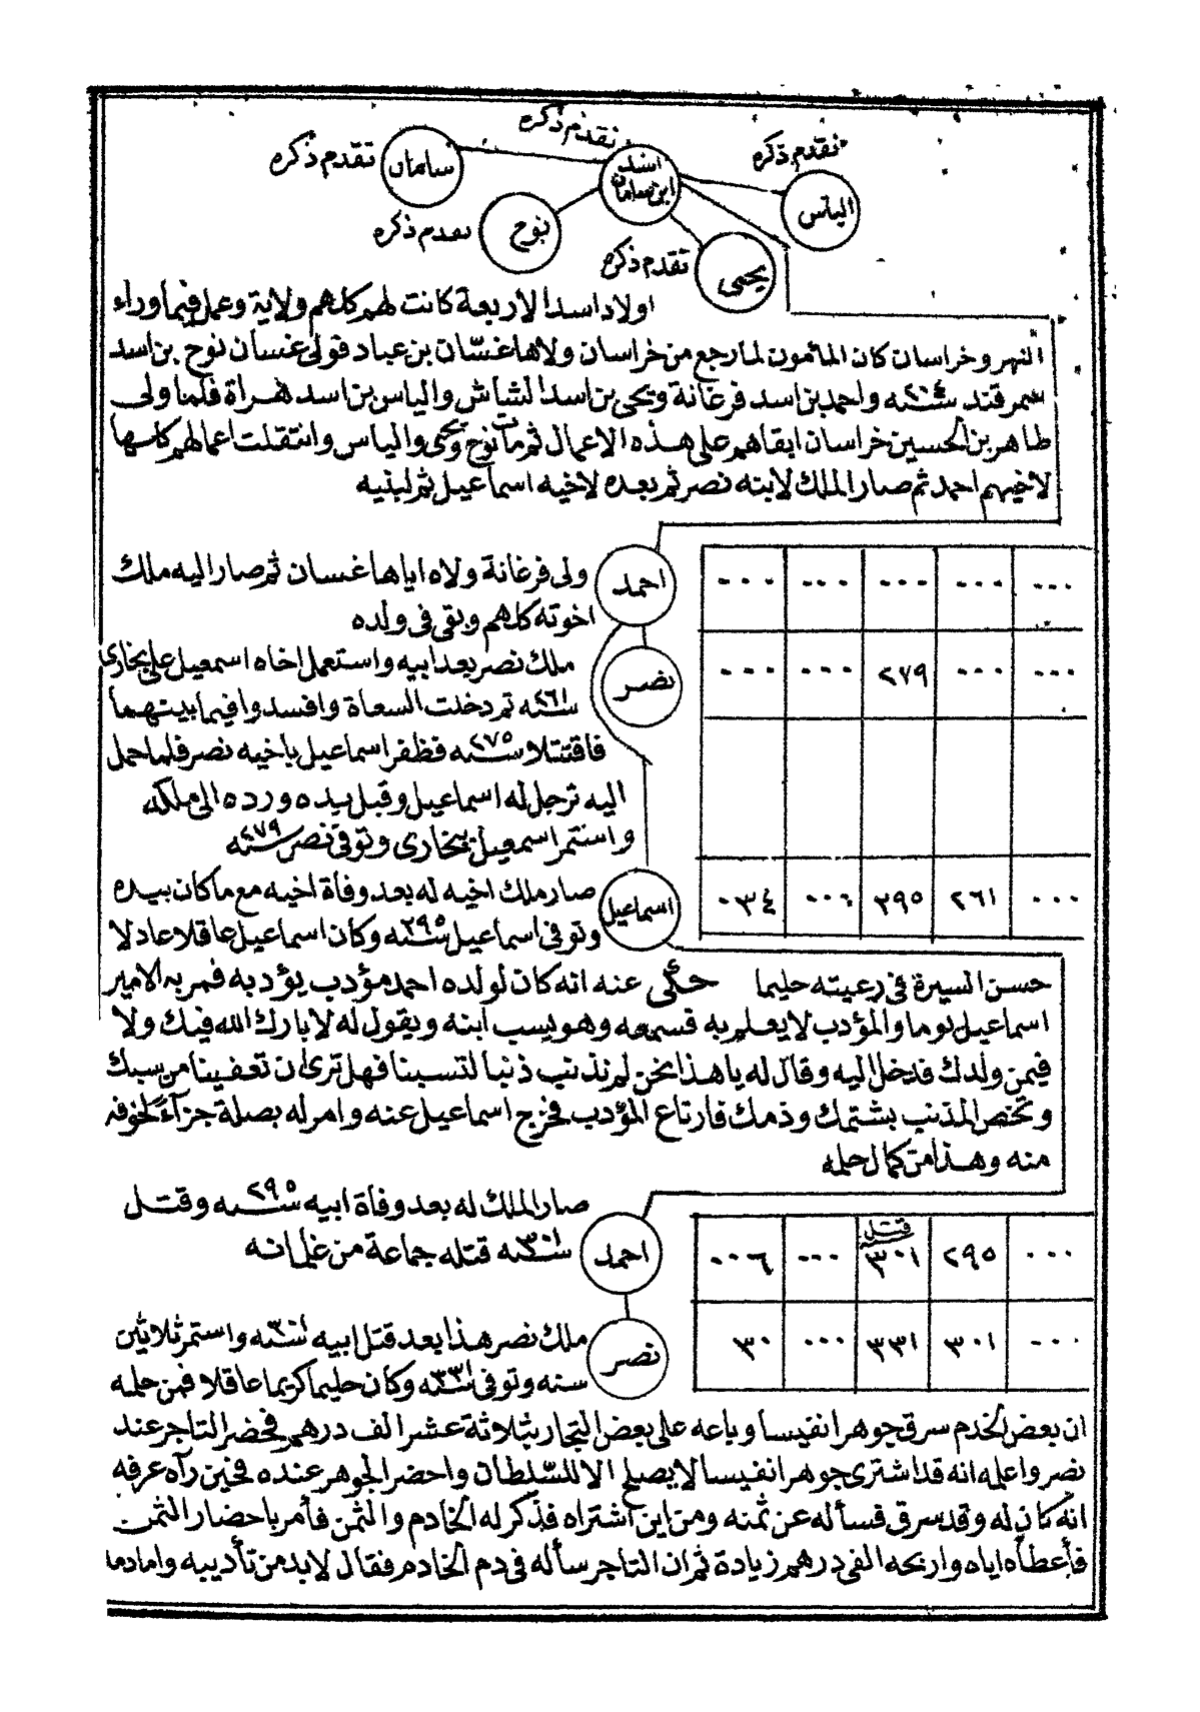 تقدم ذكره
تقدم ذكره
تقدم ذكره
سامان
اسد ابن سامان
الياس
نوح
تقدم ذكره
يحيى
تقدم ذكره
اولاد اسد الاربعة كانت لهم كلهم ولاية وعمل فيما وراء
النهر وخراسان كان المأمون لما رجع من خراسان ولاها غسّان بن عباد فولى غسان نوح بن اسد
سمرقند سنه ٢٠٤ واحمد بن اسد فرغانة ويحيى بن اسد الشاش والياس بن اسد هراة فلما ولى
طاهر بن الحسين خراسان ابقاهم على هذه الاعمال ثم مات نوح ويحيى والياس وانتقلت اعمالهم كلها
لاخيهم احمد ثم صار الملك لابنه نصر ثم بعده لاخيه اسماعيل ثم لبنيه
... ... ... ... ...
احمد
ولى فرغانة ولاه اياها غسان ثم صار اليه ملك
اخوته كلهم وبقى فى ولده
... ... ٢٧٩ ... ...
نصر
ملك نصر بعد ابيه واستعمل اخاه اسمعيل على بخارى
سنه ٢٦١ ثم دخلت السعاة وافسدوا فيما بينهما
فاقتتلا سنه ٢٧٥ فظفر اسماعيل باخيه نصر فلما حمل
اليه ترجل له اسماعيل وقبل يده ورده الى ملكه
واستمر اسمعيل ببخارى وتوفى نصر سنه ٢٧٩
... ٢٦١ ٢٩٥ ٠٠٦ ٠٣٤
اسماعيل
صار ملك اخيه له بعد وفاة اخيه مع ما كان بيده
وتوفى اسماعيل سنه ٢٩٥ وكان اسماعيل عاقلا عادلا
حسن السيرة فى رعيته حليما حكى عنه انه كان لولده احمد مؤدب يؤدبه فمر به الامير
اسماعيل يوما والمؤدب لا يعلم به فسمعه وهو يسب ابنه ويقول له لا بارك الله فيك ولا
فيمن ولدك فدخل اليه وقال له يا هذا نحن لم نذنب ذنبا لتسبنا فهل ترى ان تعفينا من سبك
وتخص المذنب بشتمك وذمك فارتاع المؤدب فخرج اسماعيل عنه وامر له بصلة جزآء لخوفه
منه وهذا من كمال حلمه
... ٢٩٥ قتل ٣٠١ ... ٠٠٦
احمد
صار الملك له بعد وفاة ابيه سنه ٢٩٥ وقتل
سنه ٣٠١ قتله جماعة من غلمانه
... ٣٠١ ٣٣١ ... ٣٠
نصر
ملك نصر هذا بعد قتل ابيه سنه ٣٠١ واستمر ثلاثين
سنه وتوفى سنه ٣٣١ وكان حليما كريما عاقلا فمن حلمه
ان بعض الخدم سرق جوهرا نفيسا وباعه على بعض التجار بثلاثة عشر الف درهم فحضر التاجر عند
نصر واعلمه انه قد اشترى جوهرا نفيسا لا يصلح الا للسّلطان واحضر الجوهر عنده فحين رآه عرفه
انه كان له وقد سرق فسأله عن ثمنه ومن اين اشتراه فذكر له الخادم والثمن فأمر باحضار الثمن
فأعطاه اياه واربحه الفى درهم زيادة ثم ان التاجر سأله فى دم الخادم فقال لابد من تأديبه واما دمه